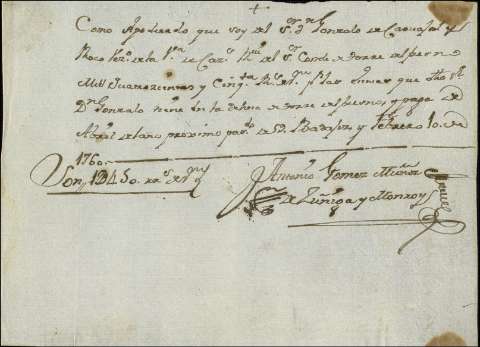 +
Como Apoderado que soy del S.or D.n Gonzalo de Carvajal y
Roco Vez.o de la V.a de Caz.s Rui del S.r Conde de Torre del fresno
Mill quatrozientos y Cinq.ta R.s de V.on p.r las que dho S.r
D.n Gonzalo tiene en la dehesa de torre del fresno, y paga de
Abril del año proximo pas.do de 59 Badajoz y febrero 10 de
1760
Son 1D450 rr.s de v.on
Antonio Gomez
de Zuñiga y Monroy